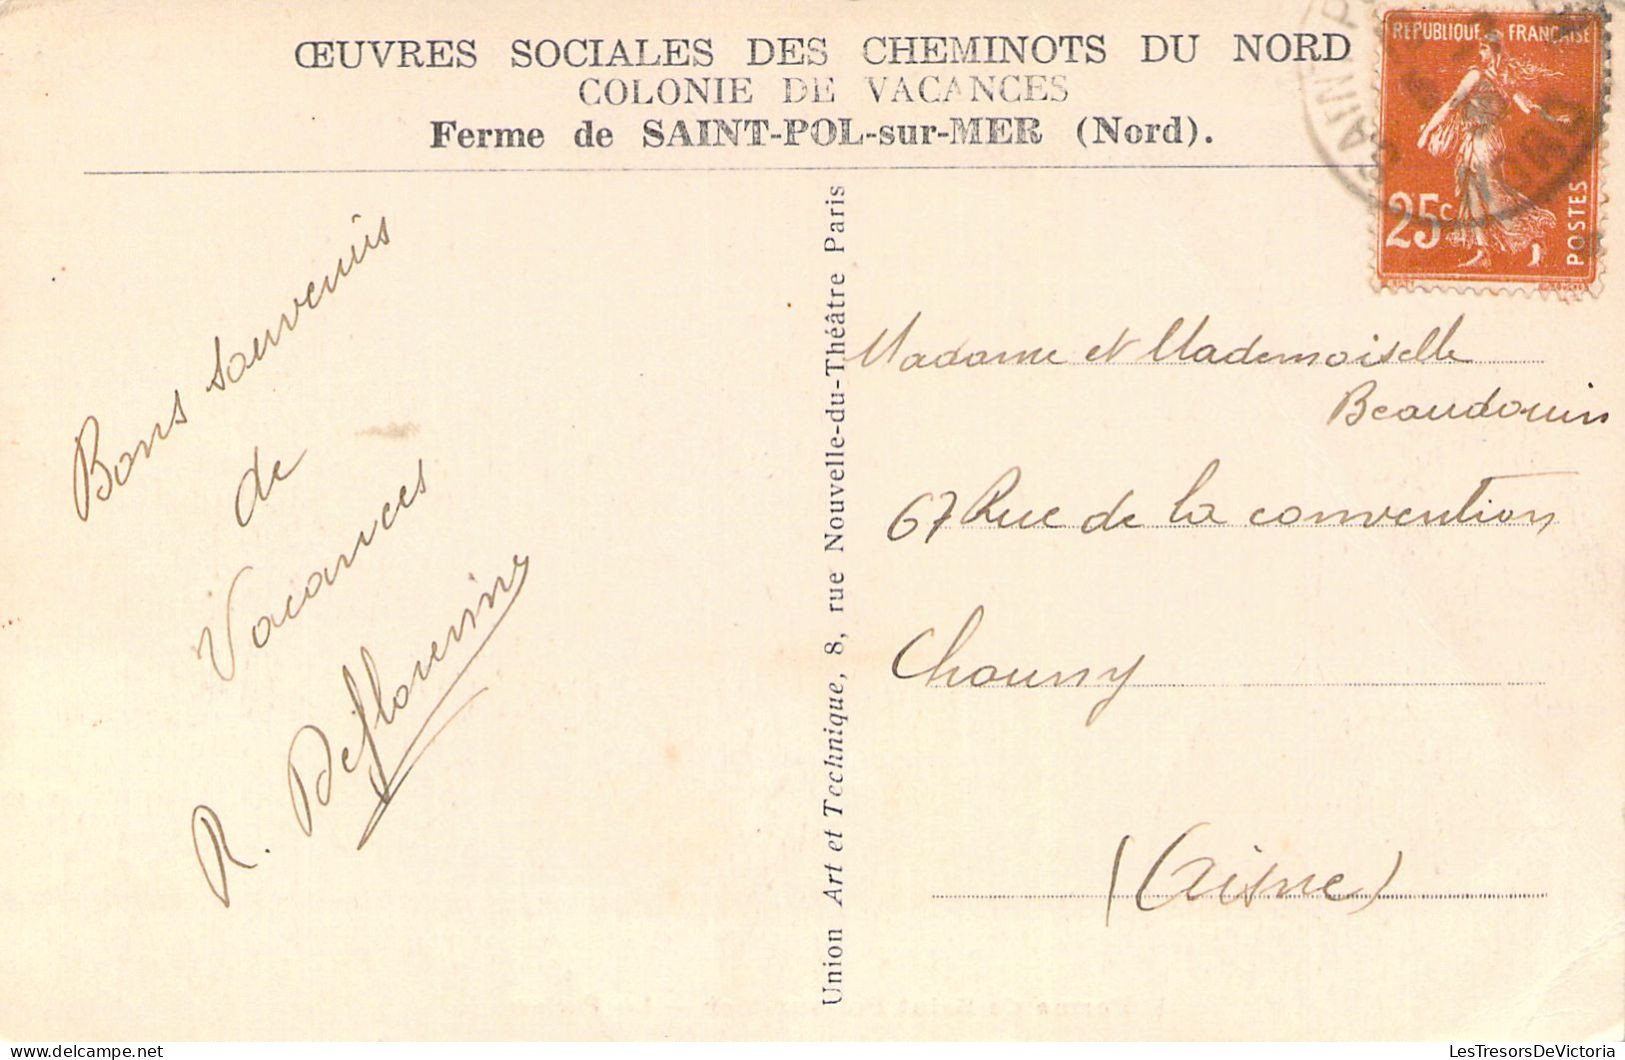 ŒUVRES SOCIALES DES CHEMINOTS DU NORD
COLONIE DE VACANCES
Ferme de SAINT-POL-sur-MER (Nord).
REPUBLIQUE FRANÇAISE
25c
POSTES
SAINT-PO
NORD
Bons souvenirs
de
Vacances
R.
Union Art et Technique, 8, rue Nouvelle-du-Théâtre Paris
Madame et Mademoiselle
Beaudouin
67 Rue de la convention
Chauny
(Aisne)
LesTresorsDeVictoria